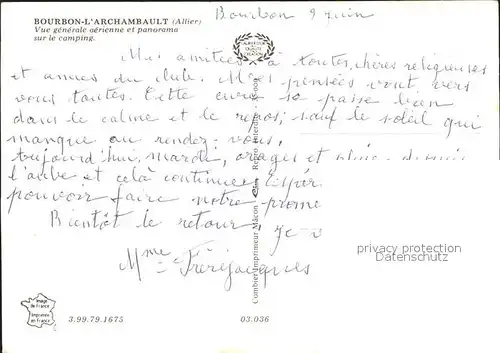 BOURBON-L'ARCHAMBAULT (Allier)
Vue générale aérienne et panorama
sur le camping.
Bourbon 9 juin
Mes amitiés à toutes, chères religieuses
et amies du club. Mes pensées vont vers
vous toutes. Cette cure se passe bien
dans le calme et le repos, sauf le soleil qui
manque au rendez-vous.
Aujourd'hui, mardi, orages et pluie depuis
l'aube et celà continue.
pouvoir faire notre
Bientôt le retour, je
Mme Frerejacques
Combier Imprimeur Mâcon
privacy protection
Datenschutz
Image
de France
Imprimé
en France
3.99.79.1675
03.036